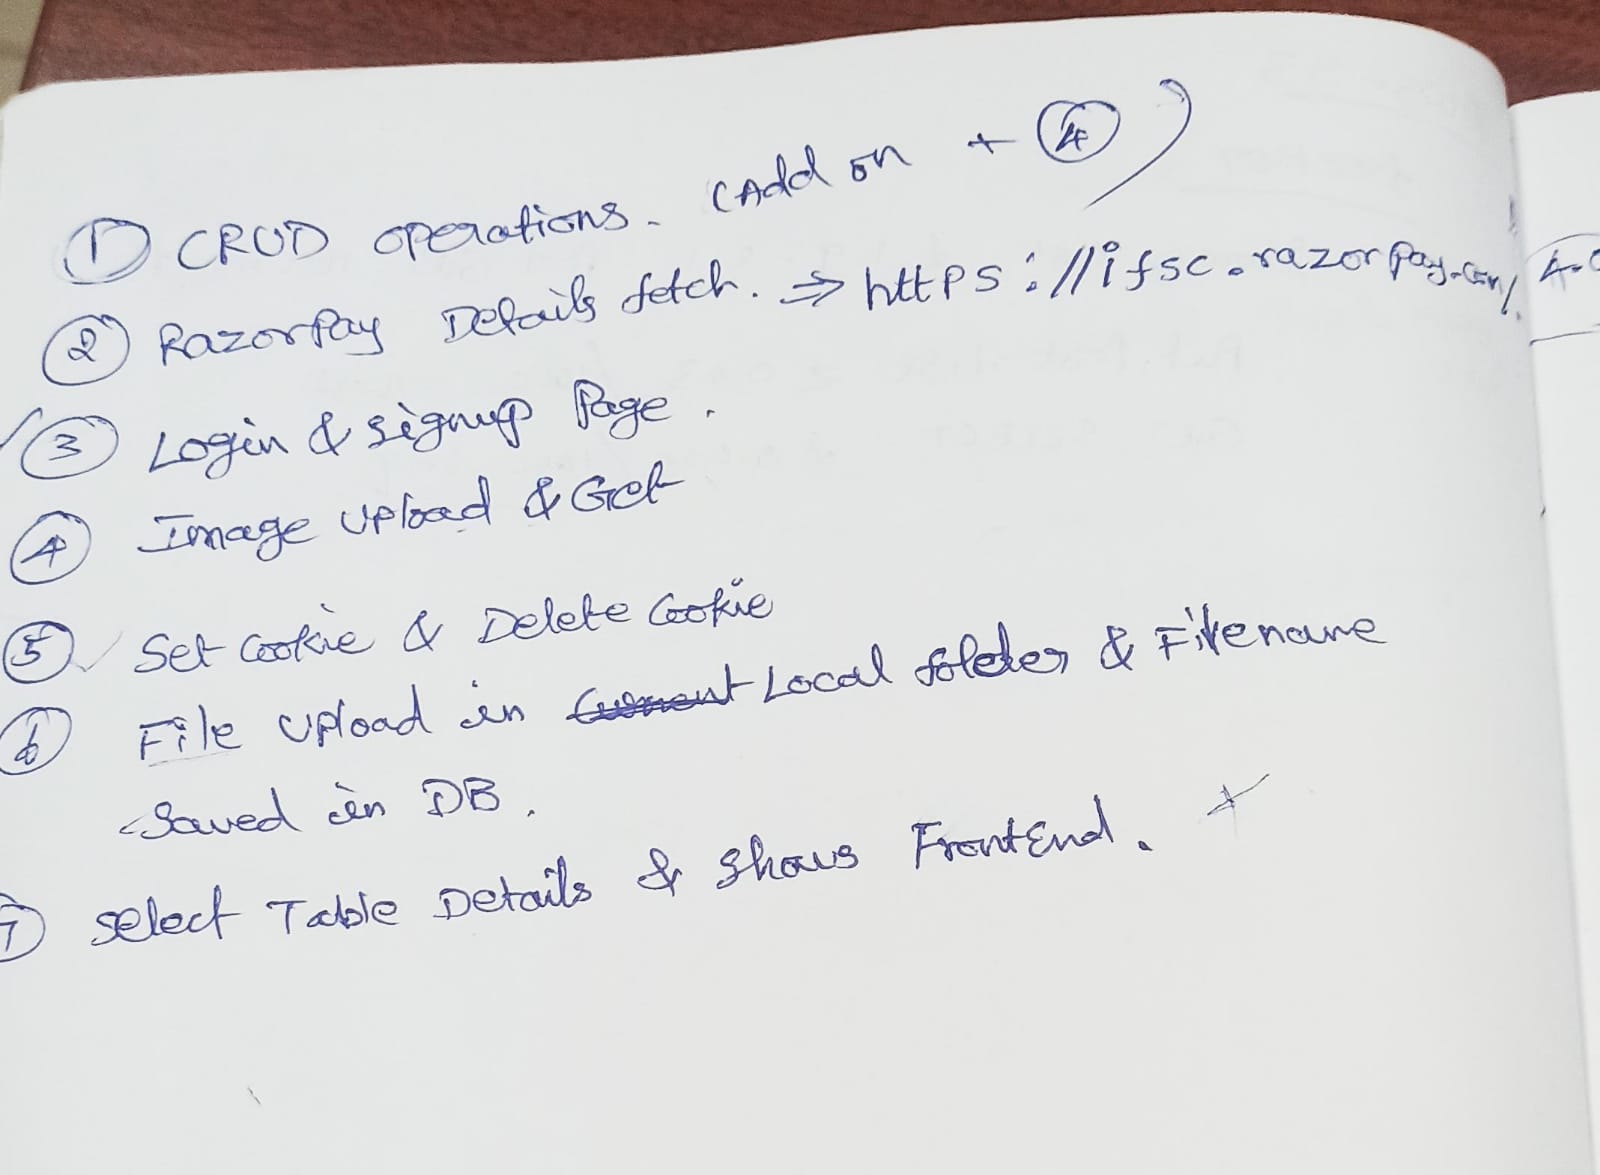 ① CRUD operations. (Add on + ④)
② RazorPay Details fetch. ⇒ https://ifsc.razorpay.com/
③ Login & signup Page.
④ Image upload & Get
⑤ Set Cookie & Delete Cookie
⑥ File upload in Local folder & Filename
Saved in DB.
⑦ select Table Details & Shows FrontEnd.